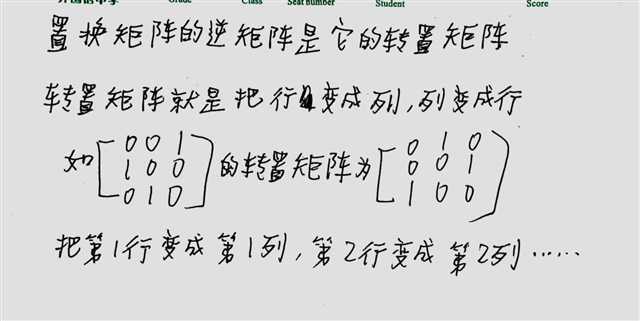 Grade Class Seat number Student Score
置换矩阵的逆矩阵是它的转置矩阵
转置矩阵就是把行变成列,列变成行
如[0 0 1
1 0 0
0 1 0]的转置矩阵为[0 1 0
0 0 1
1 0 0]
把第1行变成第1列,第2行变成第2列……